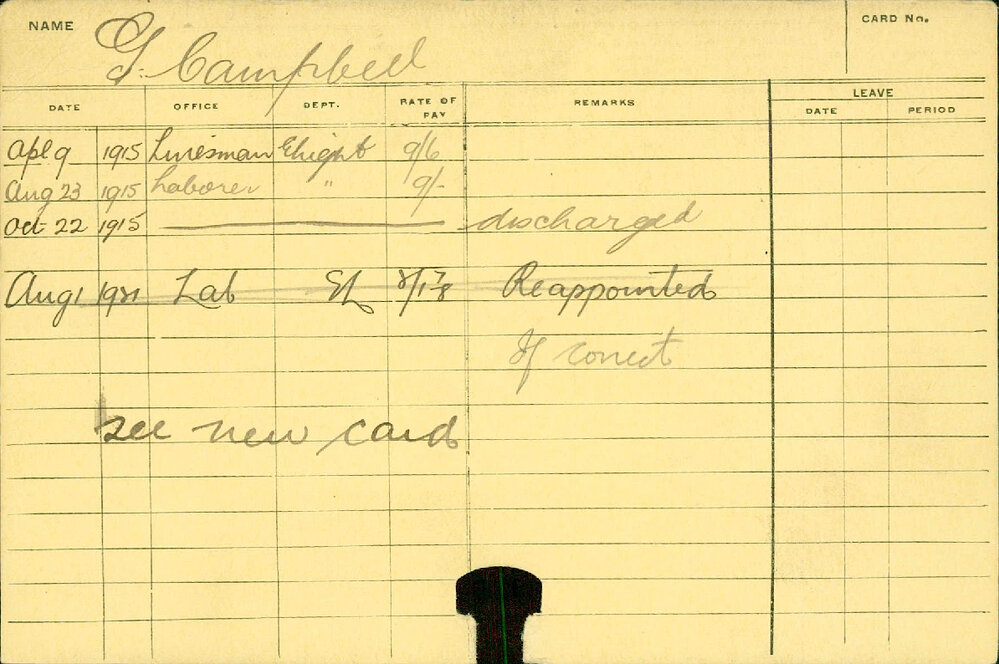 NAME G. Campbell CARD No.
DATE OFFICE DEPT. RATE OF PAY REMARKS LEAVE
DATE PERIOD
Apl 9 1915 Linesman Elight 9/6
Aug 23 1915 Laborer " 9/-
Oct 22 1915 discharged
Aug 1 1921 Lab EL Reappointed
If correct
see new card